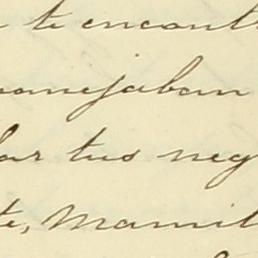 te encont
manejaban
lar tus neg
te, Mamit